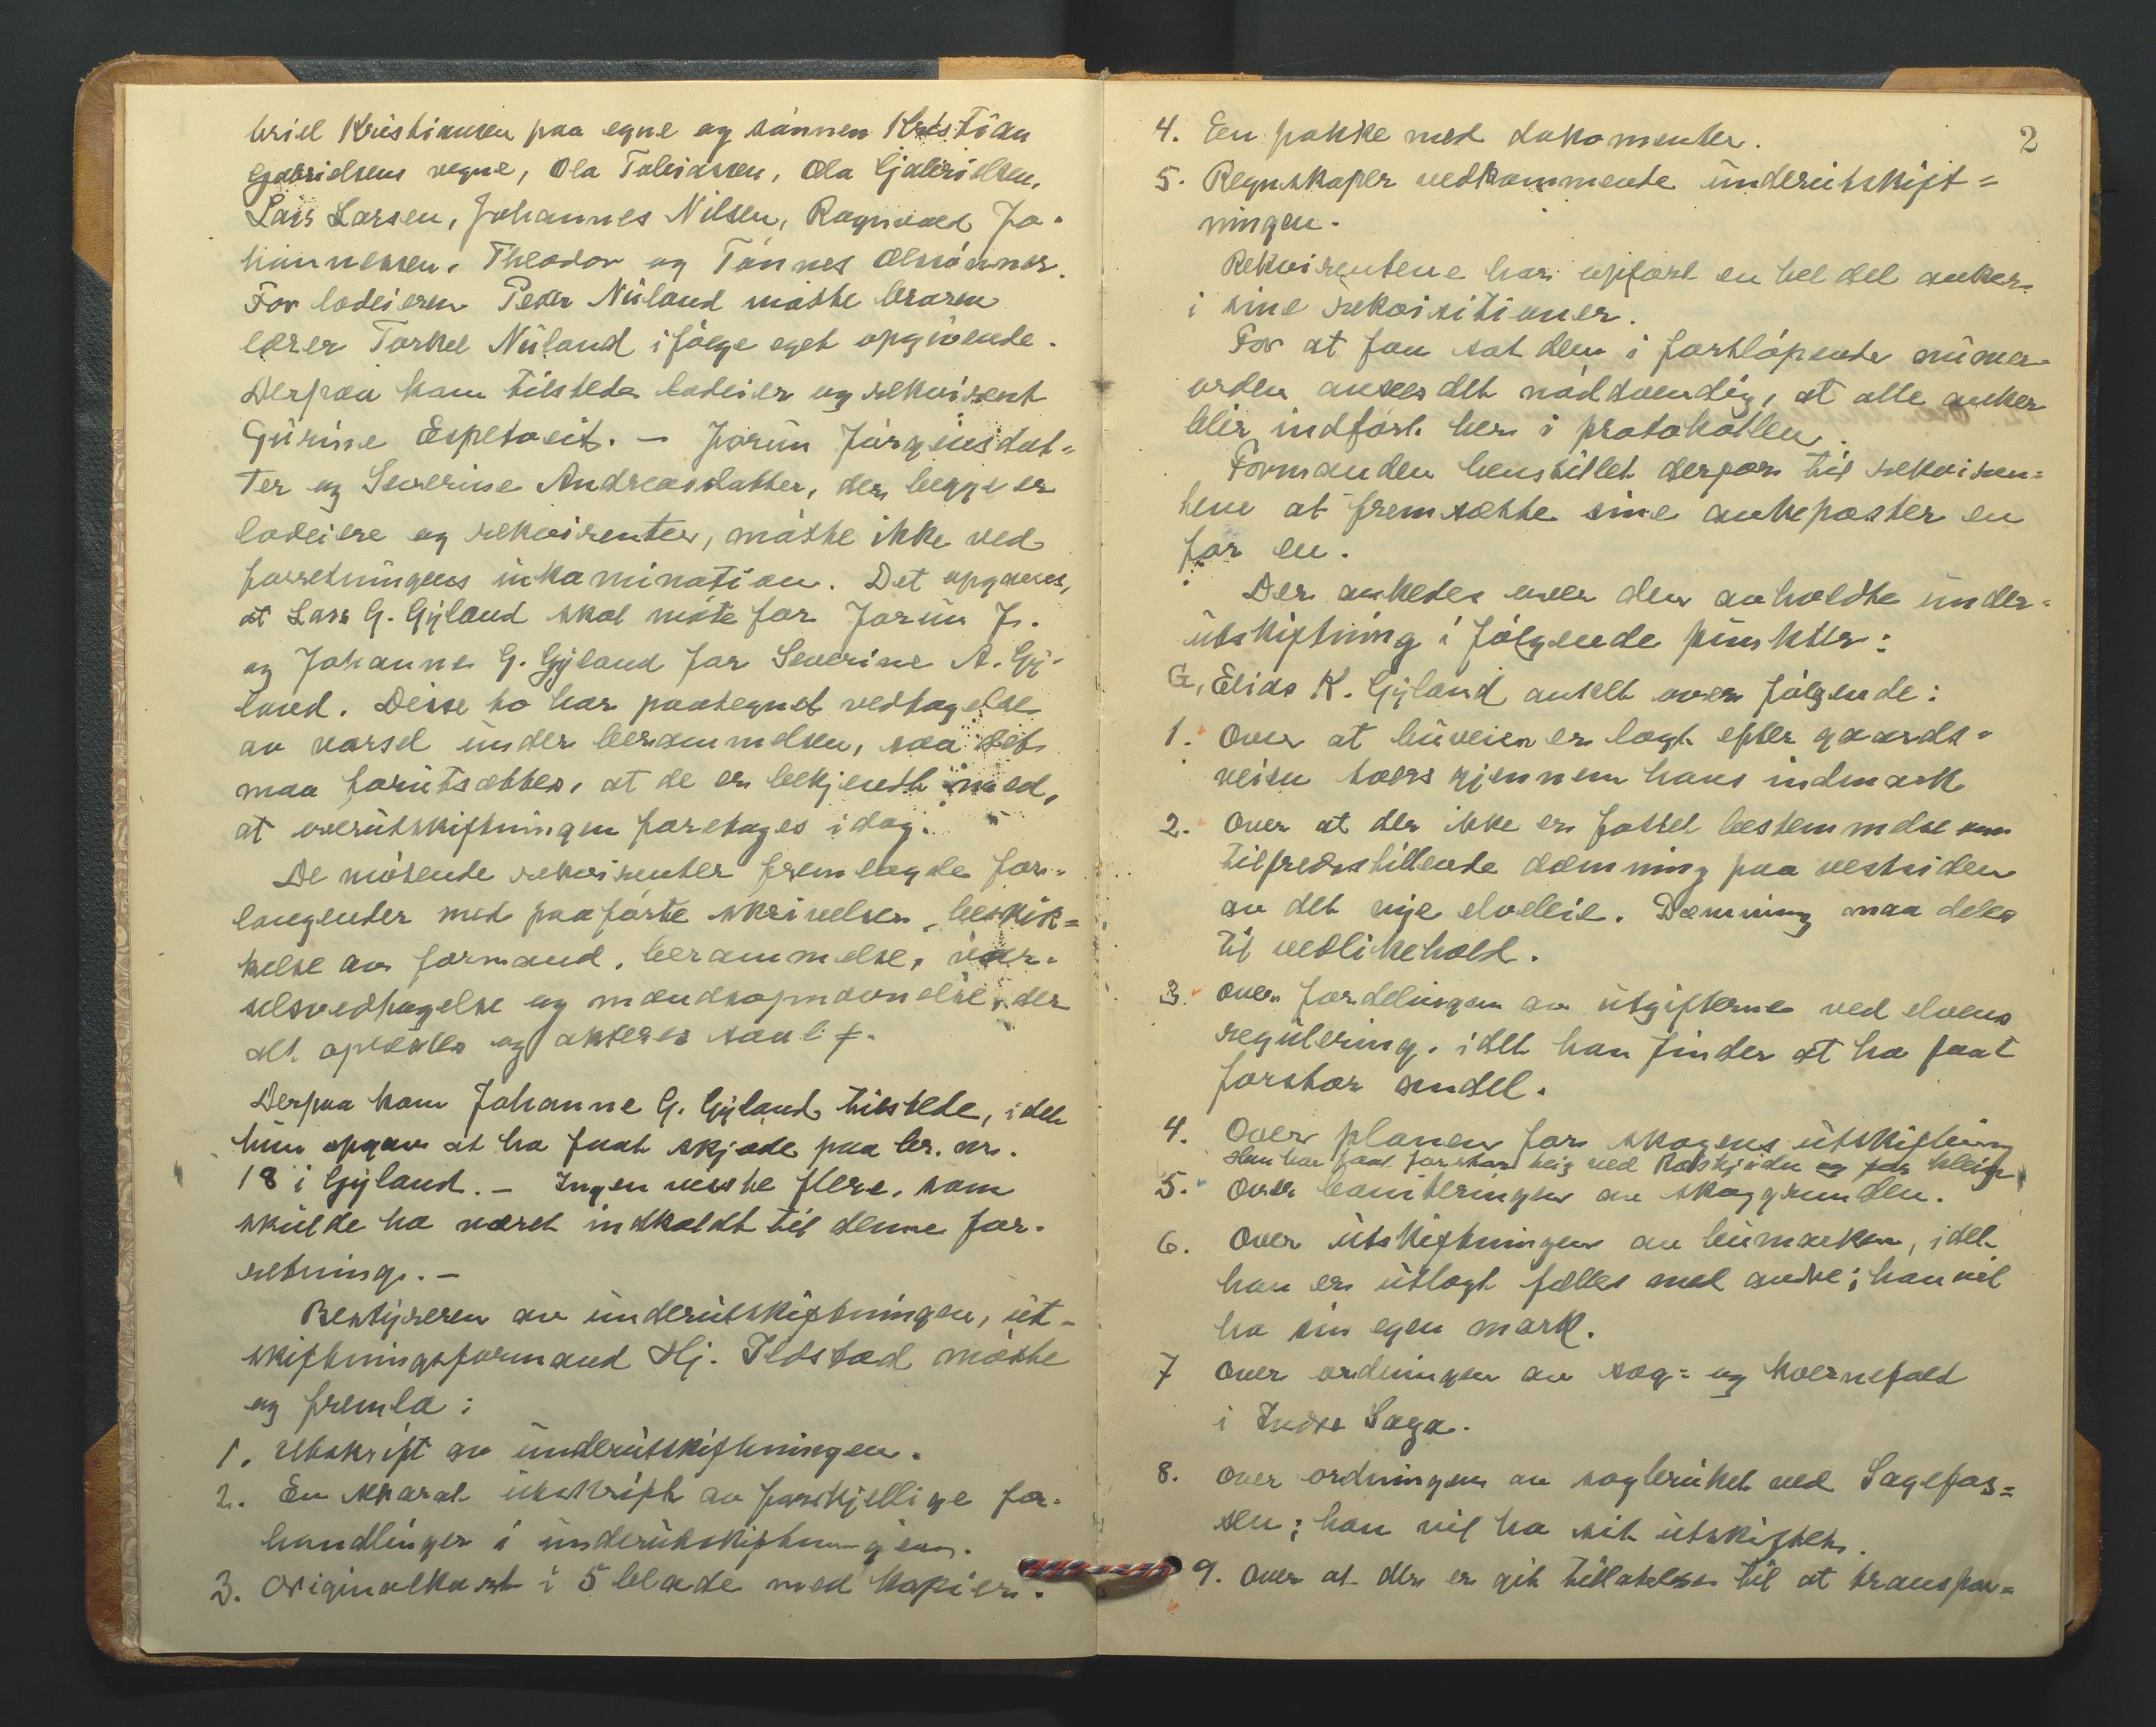 briel Kristiansen paa egne og sønnen Kristian
Gabrielsens vegne, Ola Tobiassen, Ola Gjabrielsen,
Lars Larsen, Johannes Nilsen, Ragnvald Jo-
hannessen, Theodor og Tønnes Olssønner.
For lodeieren Peder Nuland møtte broren
lærer Torkel Nuland ifølge eget opgivende.
Derpaa kom tilstede lodeier og rekvirent
Gurine Espetveit. — Jorun Jørgensdat=
ter og Severine Andreasdatter, der begge er
lodeiere og rekvirenter, møtte ikke ved
forretningens inkamination. Det opgaves,
at Lars G. Gyland skal møte for Jorun J.
og Johanne G. Gyland for Severine A. Gy-
land. Disse to har paategnet vedtagelse
av varsel under berammelsen, saa det
maa forutsættes, at de er bekjendt med,
at overutskiftningen foretages idag.
De møtende rekvirenter fremlagde for-
langender med paaførte skrivelser, beskik=
kelse av formand, berammelse, var-
selsvedtagelse og mændsopnævnelse, der
alt oplæstes og akteres saal. f.
Derpaa kom Johanne G. Gyland tilstede, idet
hun opgav at ha faat skjøde paa br. nr.
18 i Gyland. — Ingen visste flere, som
skulde ha været indkaldt til denne for-
retning. —
Bestyreren av underutskiftningen, ut-
skiftningsformand Hj. Ildstad møtte
og fremla:
1. Utskrift av underutskiftningen.
2. En separat utskrift av forskjellige for-
handlinger i underutskiftningen.
3. Originalkart i 5 blade med kopier.
2
4. En pakke med dokomenter.
5. Regnskaper vedkommende underutskift=
ningen.
Rekvirentene har opført en hel del anker
i sine rekvisitioner.
For at faa sat dem i fortløpende numer-
orden ansees det nødvendig, at alle anker
blir indført her i protokollen.
Formanden henstillet derfor til rekviren=
tene at fremsætte sine ankeposter en
for en.
Der ankedes over den avholdte under=
utskiftning i følgende punkter:
G, Elias K. Gyland anket over følgende:
1. Over at buveien er lagt efter gaards=
veien tvers gjennem hans indmark
2. Over at der ikke er fattet bestemmelse om
tilfredsstillende dæmning paa vestsiden
av det nye elveleie. Dæmning maa deles
til vedlikehold.
3. Over fordelingen av utgifterne ved elvens
regulering, idet han finder at ha faat
forstor andel.
4. Over planen for skogens utskiftning
Han har faat forstor teig ved Rotskjødn og for
5. Over boniteringen av skoggrunden.
6. Over utskiftningen av bumarken, idet
han er utlagt fælles med andre; han vil
ha sin egen mark.
7 Over ordningen av sag= og kvernefald
i Indre Saga.
8. Over ordningen av sagbruket ved Sagefos=
sen; han vil ha sit utskiftet.
9. Over at der er git tillatelse til at transpor=